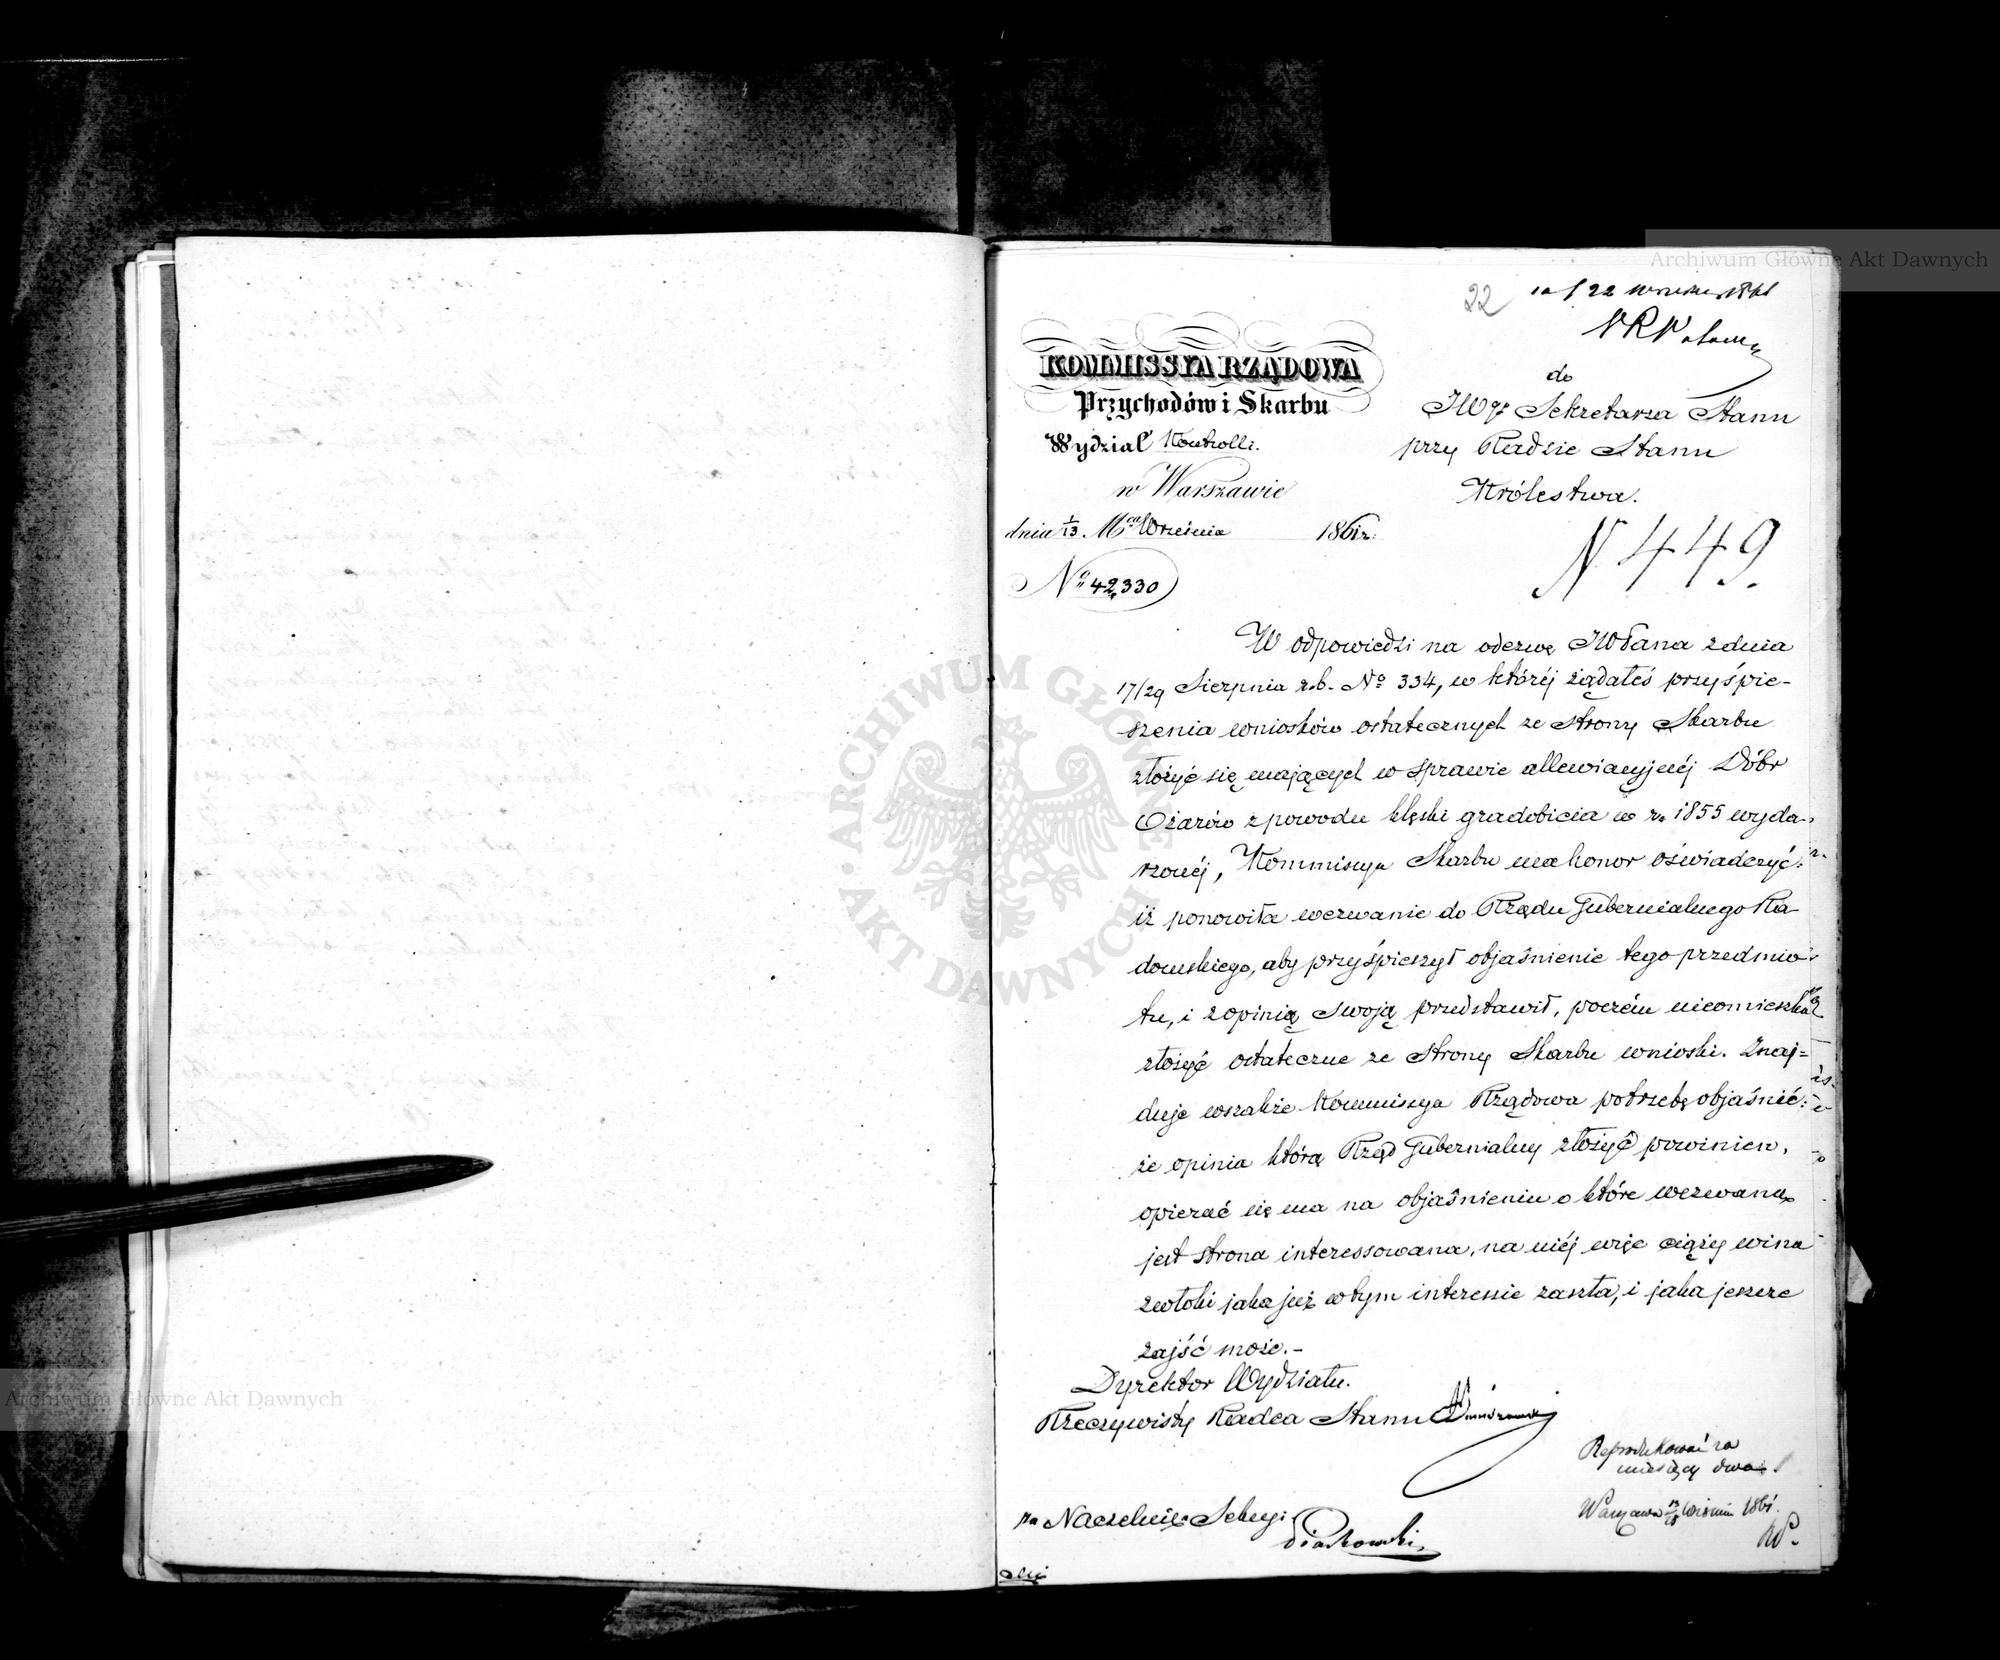 22
22
KOMMISSYA RZĄDOWA
Przychodów i Skarbu
Wydział Kontrolli.
w Warszawie
dnia 1/13 Mca Września 1861 r.
No 42,330
do
JWgo Sekretarza Stanu
przy Radzie Stanu
Królestwa.
N 449.
W odpowiedzi na odezwę JWPana z dnia
17/29 Sierpnia r.b. No 334, w któréj żądałeś przyśpie-
szenia wniosków ostatecznych ze strony Skarbu
złożyć się mających w sprawie allewiacyjnéj Dóbr
Ożarów z powodu klęski gradobicia w r. 1855 wyda-
rzonéj, Kommissya Skarbu ma honor oświadczyć:
iż ponowiła wezwanie do Rządu Gubernialnego Ra-
domskiego, aby przyśpieszył objaśnienie tego przedmio-
tu, i z opinią swoją przedstawił, poczém nieomieszka
złożyć ostateczne ze strony Skarbu wnioski. Znaj-
duje wszakże Kommissya Rządowa potrzebę objaśnić:
że opinia którą Rząd Gubernialny złożyć powinien,
opierać się ma na objaśnieniu o które wezwaną
jest strona interessowana, na niéj więc ciąży wina
zwłoki jaka już w tym interessie zaszła, i jaka jeszcze
zajść może.-
Dyrektor Wydziału.
Rzeczywisty Radca Stanu
Reprodukować za
miesięcy dwa
Warszawa Wrześnie 1861.
za Naczelnika Sekcyi
Piaskowski
ARCHIWUM GŁÓWNE
AKT DAWNYCH
Archiwum Główne Akt Dawnych
Archiwum Główne Akt Dawnych